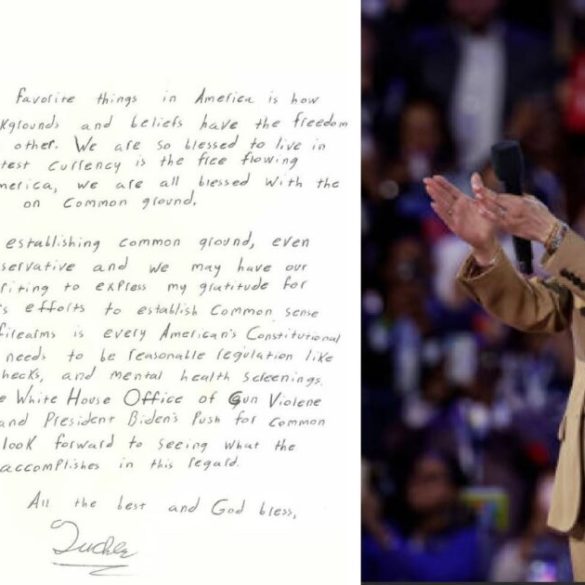 favorite things in America is how
kgrounds and beliefs have the freedom
other. We are so blessed to live in
test currency is the free flowing
merica, we are all blessed with the
on common ground.
establishing common ground, even
servative and we may have our
riting to express my gratitude for
s efforts to establish common sense
firearms is every American's Constitutional
needs to be reasonable regulation like
hecks, and mental health screenings.
e White House Office of Gun Violene
and President Biden's Push for common
look forward to seeing what the
accomplishes in this regard.
All the best and God bless,